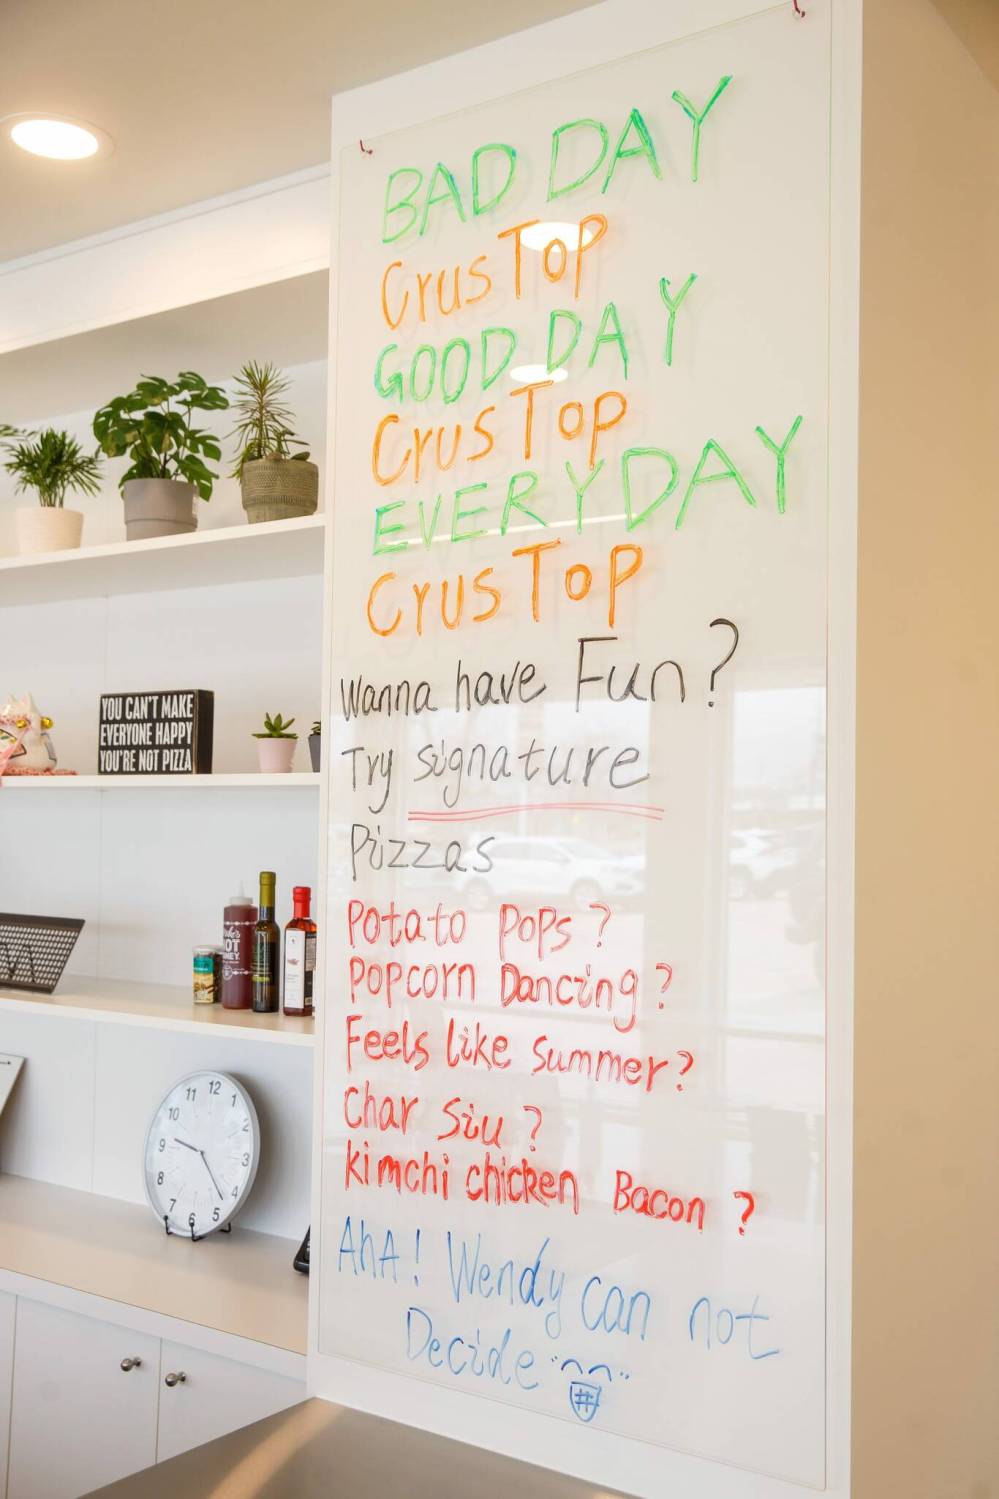 BAD DAY
CrusTop
GOOD DAY
CrusTop
EVERYDAY
CrusTop
Wanna have Fun?
Try signature
Pizzas
Potato Pops?
Popcorn Dancing?
Feels like Summer?
Char Siu?
kimchi chicken Bacon?
AhA! Wendy can not
Decide
YOU CAN'T MAKE
EVERYONE HAPPY
YOU'RE NOT PIZZA
11 12 1
10 2
9 3
8 4
7 6 5